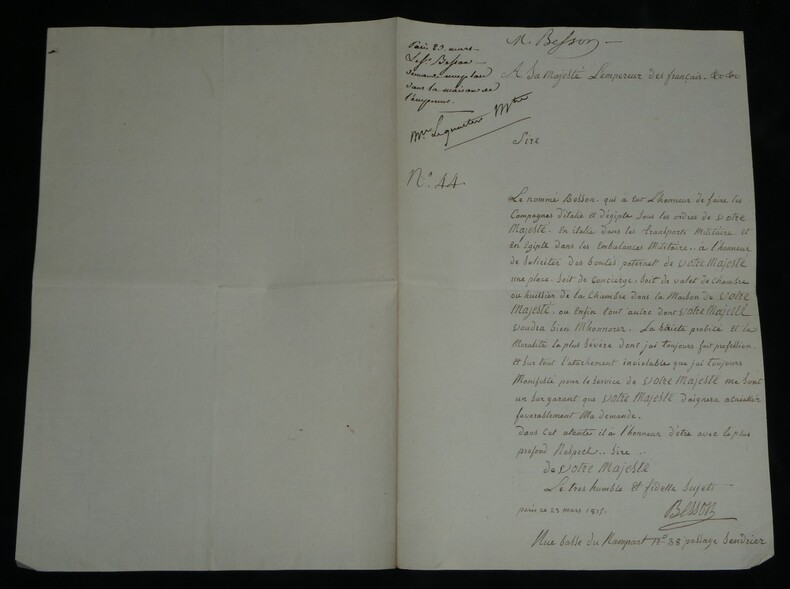 M. Besson
Paris 23. mars
Le Sr. Besson
demande une place
dans la maison de
l'empereur.
Mr. Lequestier
A Sa Majesté L'empereur des français. &c &c
Sire
N°. 44
Le nommé Besson. qui à eut L'honneur de faire les
Campagnes d'italie et d'égipte sous les ordres de Votre
Majesté. En italie dans les transports Militaire et
en Egipte dans les Embulances Militaire.. à l'honneur
de Soliciter des bontés paternel de Votre Majesté
une place. Soit de Concierge. Soit de valet de Chambre
ou huissier de la Chambre dans la Maison de Votre
Majesté. ou Enfin tout autre dont Votre Majesté
voudra bien M'honnorer. La stricte probité et la
Moralité la plus Sévère dont j'ai toujours fait profession.
et Sur tout l'atachement inviolable que j'ai toujours
Manifesté pour le Service de Votre Majesté me Sont
un Sur garant que Votre Majesté daignera acueillir
favorablement Ma demande.
Dans Cet atente il à l'honneur d'être avec le plus
profond Respect.. Sire..
de Votre Majesté
Le tres humble et fidelle Sujets
paris ce 23 mars 1815.
Besson
Rue basse du Rampart N° 38 passage Sendrier